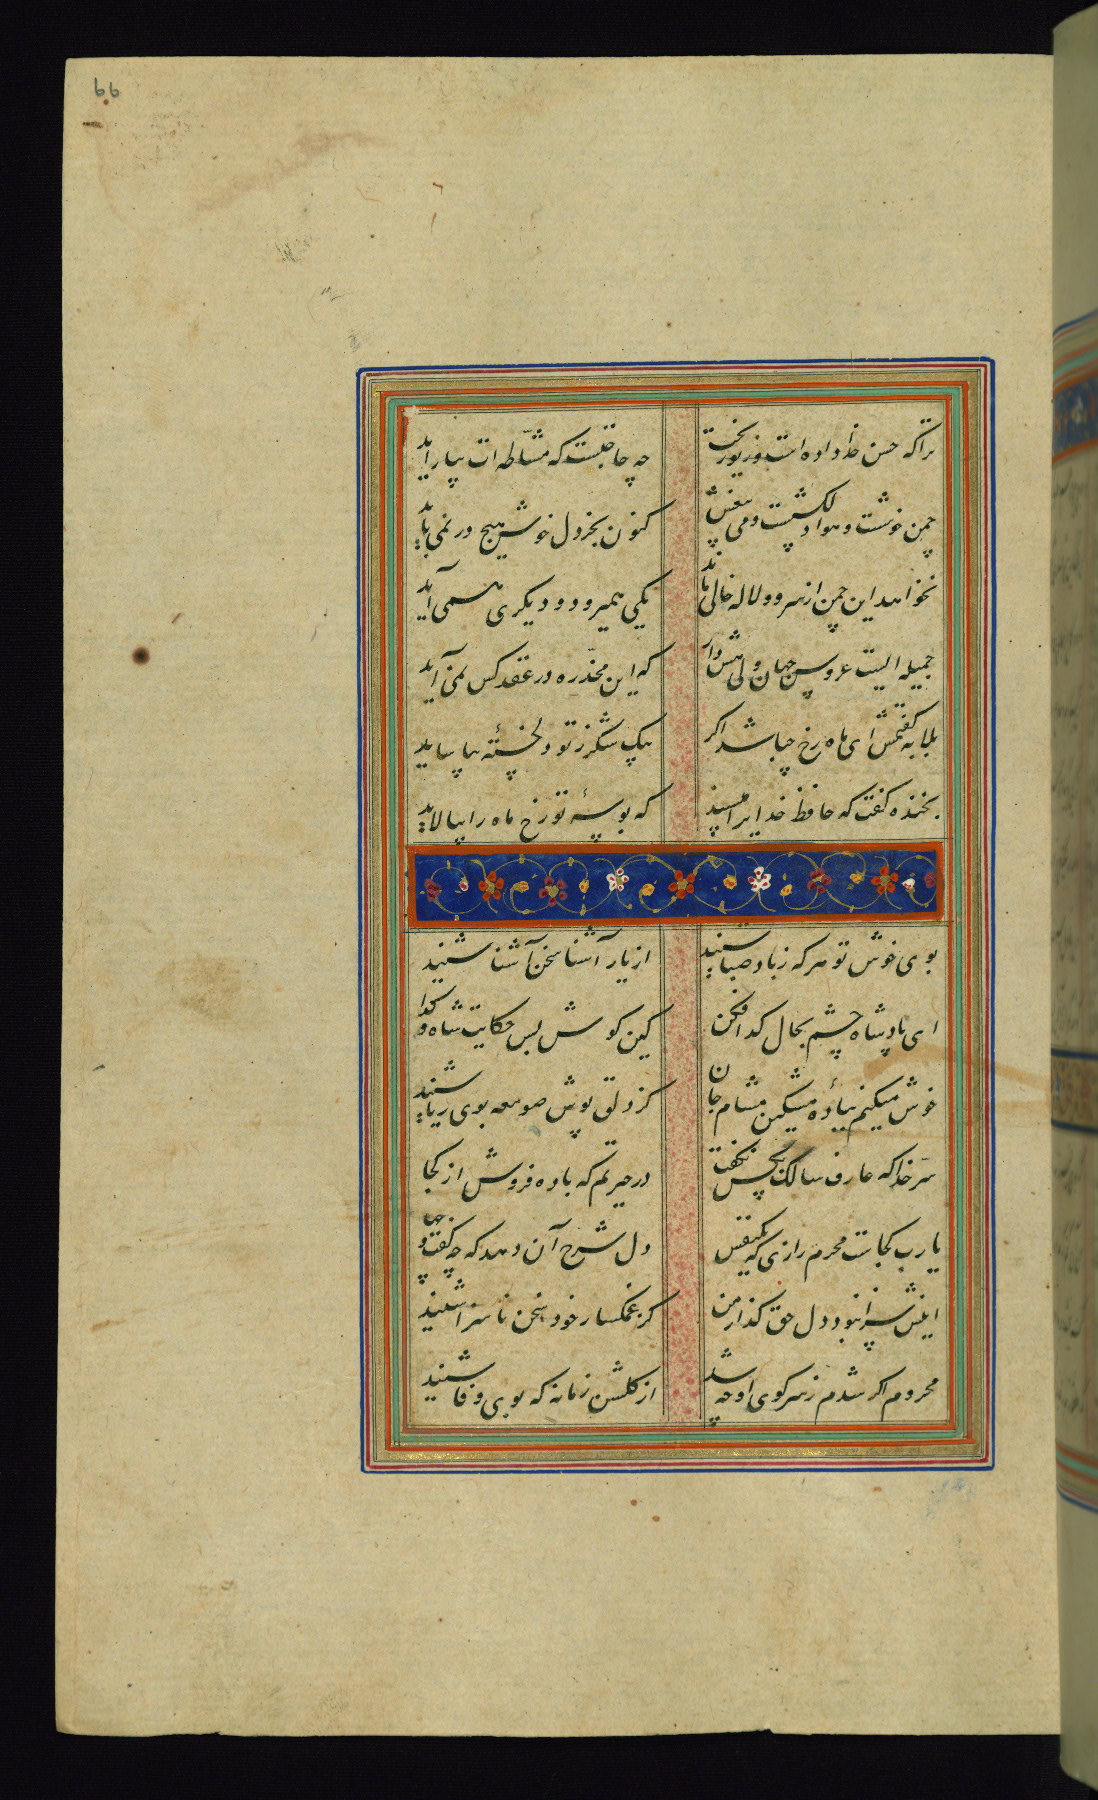 66
ترا که حسن خداداده است و زیور بخت
چه حاجتست که مشّاطه ات بیاراید
چمن خوشست و هوا دلکشست و می بیغش
کنون بجز دل خوش هیچ در نمی یابد
نخواهد این چمن از سرو و لاله خالی ماند
یکی همیرود و دیگری همی آید
جمیله ایست عروس جهان ولی هش دار
که این مخدّره در عقد کس نمی آید
بلابه گفتمش ای ماه رخ چه باشد اگر
بیک شکر ز تو دلخستهٔ بیاساید
بخنده گفت که حافظ خدایرا مپسند
که بوسهٔ تو رخ ماه را بیالاید
بوی خوش تو هر که ز باد صبا شنید
از یار آشنا سخن آشنا شنید
ای پادشاه چشم بحال گدا فکن
کین گوش بس حکایت شاه و گدا
خوش میکنم ببادهٔ مشکین مشام جان
کز دلق پوش صومعه بوی ریا شنید
سرّ خدا که عارف سالک بکس نگفت
در حیرتم که باده فروش از کجا
یا رب کجاست محرم رازی که یکنفس
دل شرح آن دهد که چه گفت و چها
اینش سزا نبود دل حق گذار من
کز غمگسار خود سخن ناسزا شنید
محروم اگر شدم ز سر کوی او چه شد
از گلشن زمانه که بوی وفا شنید